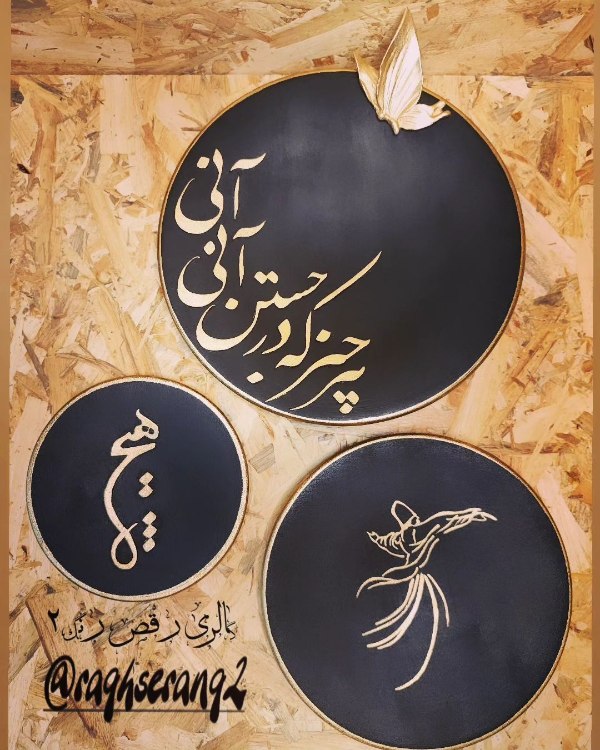 هر چیز که در جستن
آنی
آنی
هیچ
گالری رقص رنگ ۲
@raghserang2